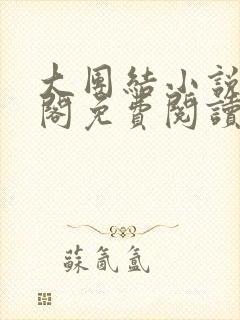 大團結小說
閣免費閱讀
蘇氤氳